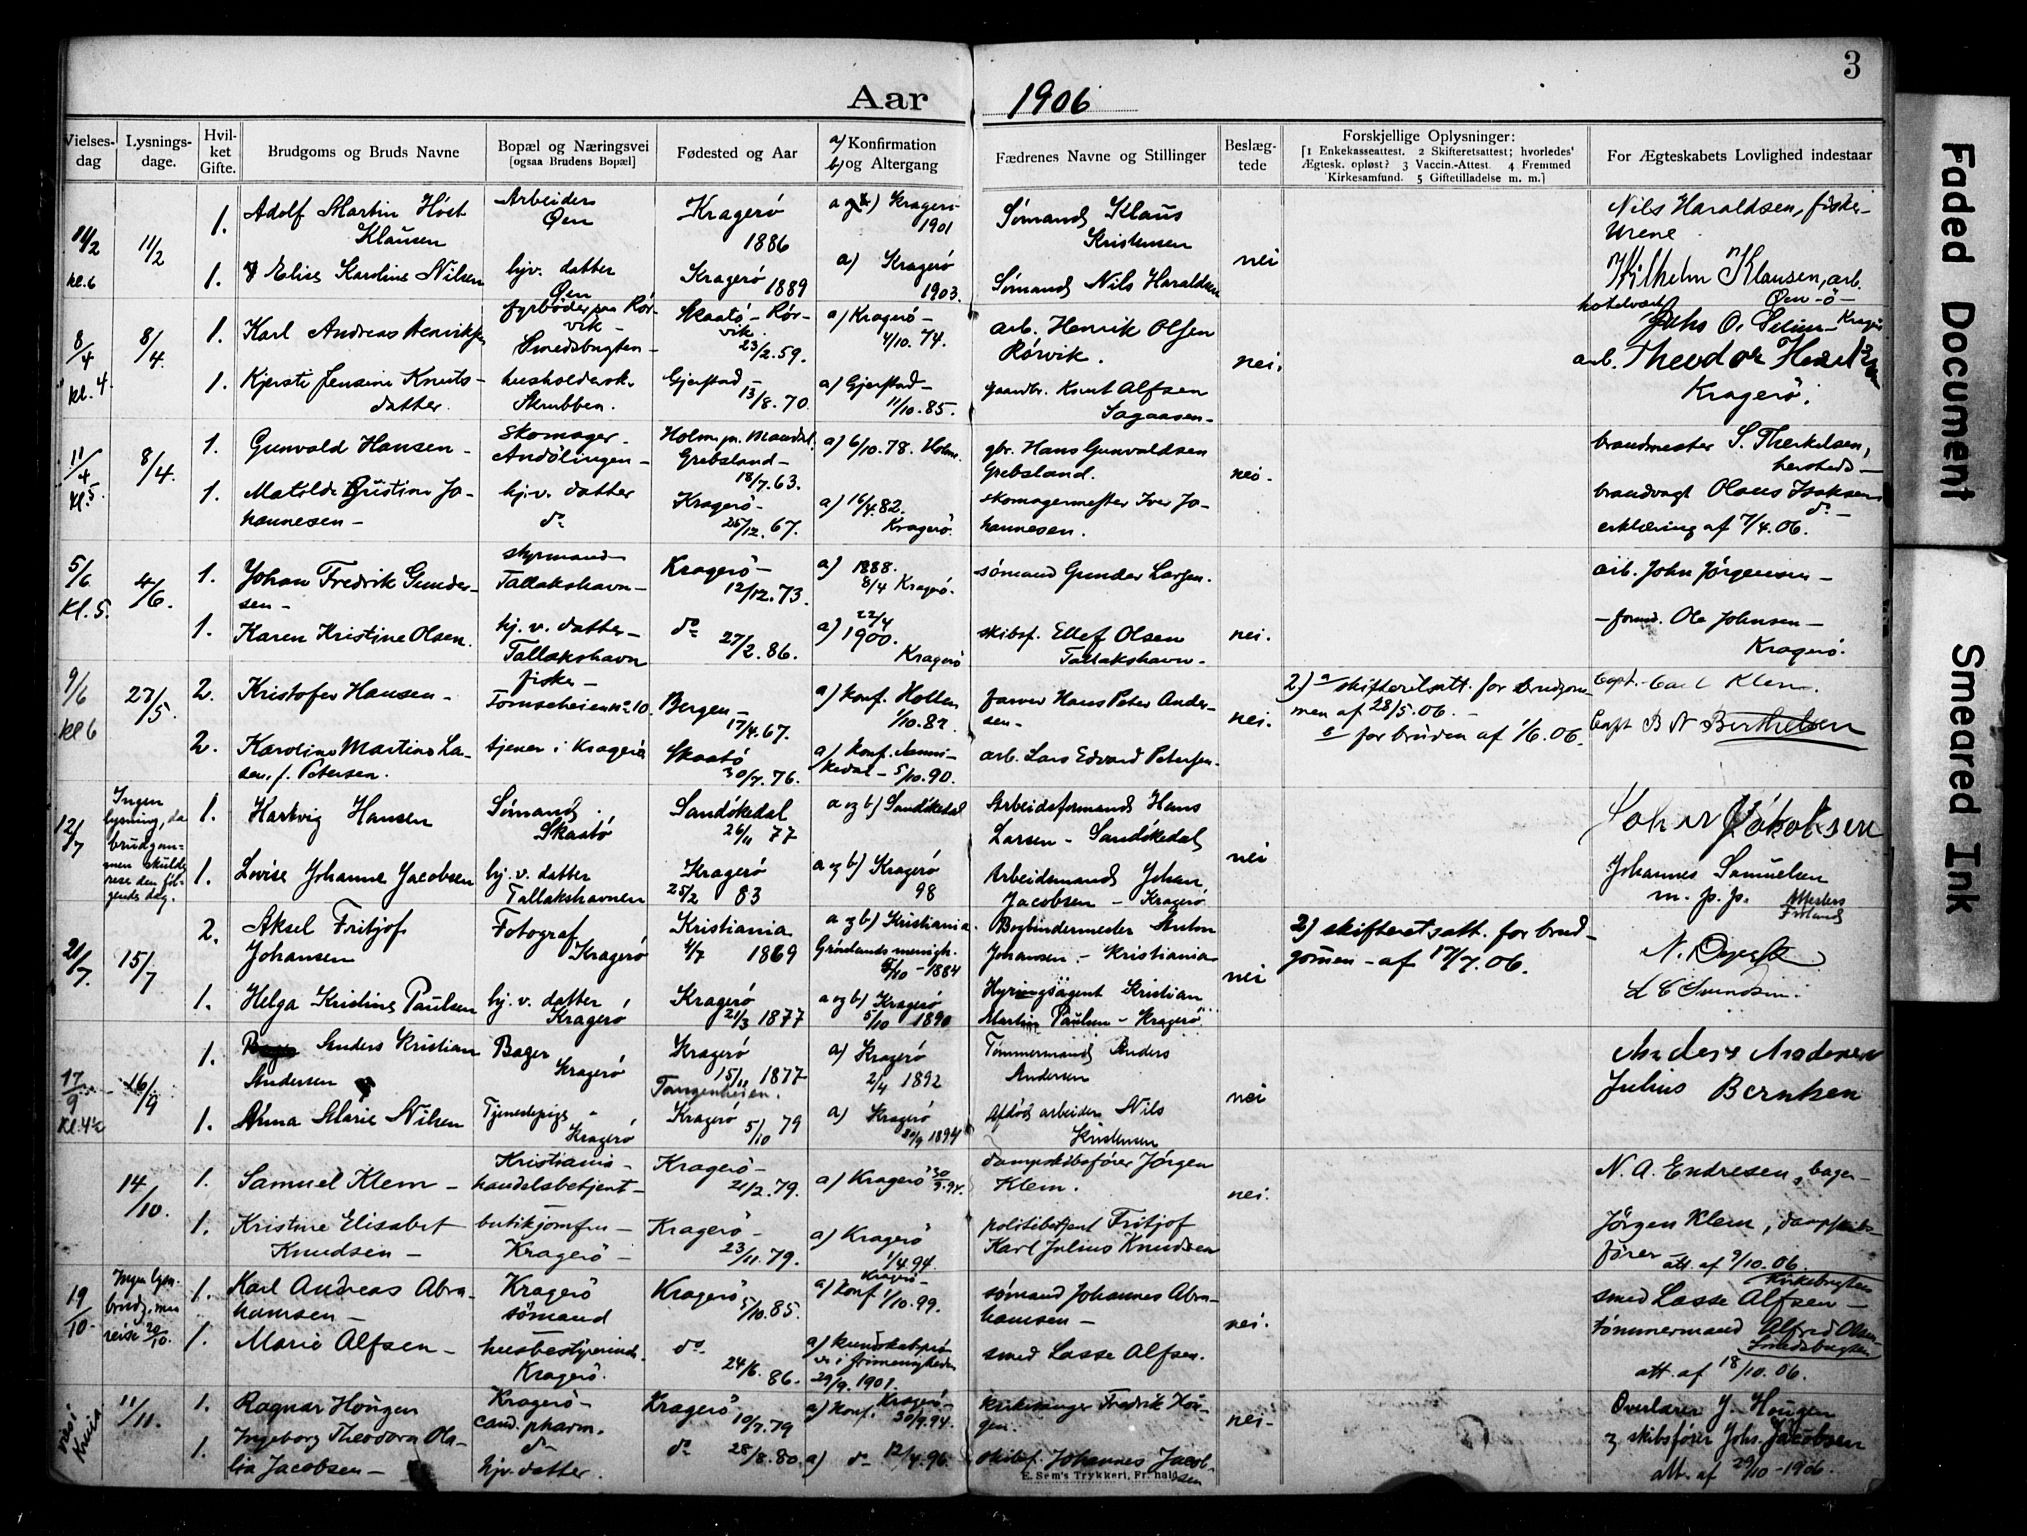 3
Aar 1906
Vielses-dag
Lysnings-dage.
Hvil-ket Gifte.
Brudgoms og Bruds Navne
Bopæl og Næringsvei [ogsaa Brudens Bopæl]
Fødested og Aar
a) Konfirmation b) og Altergang
Fædrenes Navne og Stillinger
Beslæg-tede
Forskjellige Oplysninger: [1 Enkekasseattest. 2 Skifteretsattest; hvorledes' Ægtesk. opløst? 3 Vaccin.-Attest. 4 Fremmed Kirkesamfund. 5 Giftetilladelse m. m.]
For Ægteskabets Lovlighed indestaar
11/2 kl. 6
11/2
1. Adolf Martin Höst Klausen
Arbeider Øen
Kragerö 1886
a og b) Kragerö 1901
Sømand Klaus Kristensen
nei
Nils Haraldsen, fisker
1. Elise Karoline Nilsen
hjv. datter Øen
Kragerö 1889
a) Kragerö 1903.
Sømand Nils Haraldsen
Wilhelm Klausen, arb. Øen
8/4 kl. 4
8/4.
1. Karl Andreas Henriksen
fyrbøder paa Rörvik - Smedsbugten -
Skaatö - Rörvik 23/2. 59.
a) Kragerö - 4/10. 74.
arb. Henrik Olsen Rörvik.
nei.
hotelvært
arb. Theodor Kragerö.
1. Kjersti Jensine Knutsdatter.
husholdersk. Skrubben.
Gjerstad - 13/8. 70.
a) Gjerstad - 11/10. 85.
gaardbr. Knut Alfsen Sagaasen -
11/4 kl. 5.
8/4.
1. Gunvald Hansen -
Skomager. Andölingen -
Holme pr. Mandal. Grebsland - 18/7. 63.
a) 6/10. 78. Holme.
gbr. Hans Gunvaldsen Grebsland.
nei.
brandmester S. Therkelsen, hersteds -
1. Matilde Justine Johannesen -
hj. v. datter do
Kragerö - 25/12. 67.
a) 16/4. 82. Kragerö.
skomagermester Iver Johannesen.
brandvagt Olaus Isaksen do -
erklæring af 7/4. 06.
5/6 Kl. 5.
4/6.
1. Johan Fredrik Gundersen -
styrmand Tallakshavn -
Kragerö - 12/12. 73.
a) 1888. 8/4 Kragerö.
sømand Gunder Larsen.
nei.
arb. John Jörgensen -
1. Karen Kristine Olsen.
hj. v. datter - Tallakshavn
do 27/2. 86.
a) 22/4 1900. Kragerö
skibsf. Ellef Olsen Tallakshavn -
- formd. Ole Johnsen - Kragerö.
9/6 kl 6
27/5.
2. Kristofer Hansen -
fisker - Tornseheien no 10.
Bergen - 17/4. 67.
a) konf. Hollen 1/10. 82.
farver Hans Peter Andersen -
nei.
2.) a skifteretsatt. for brudgommen af 28/5. 06. -
b for bruden af 1/6. 06.
Capt. Carl Klem.
Capt B N Berthelsen
2. Karoline Martine Lasen, f. Petersen.
tjener i Kragerö
Skaatö 30/7. 76.
a) konf. Sannikedal - 5/10. 90.
arb. Lars Edvard Petersen.
12/7
Ingen lysning, da brudgommen skulde reise den følgende dag.
1. Hartvig Hansen
Sömand. Skaatö
Sandökedal 26/11 77
a og b) Sandökedal
Arbeidsformand Hans Larsen - Sandökedal
nei
Johan Jakobsen
1. Lovise Johanne Jacobsen
hj. v. datter Tallakshavnen
Kragerö 25/2 83
a og b) Kragerö 98
Arbeidsmand Johan Jacobsen - Kragerö
Johannes Samuelsen m. p. p.
21/7.
15/7
2. Aksel Fritjof Johansen
Fotograf Kragerö
Kristiania 4/7 1869
a og b) Kristiania Grönlands menigh. 5/10 - 1884
Bogbindermester Anton Johansen - Kristiania
nei
2) skifteretsatt. for brudgommen - af 17/7. 06.
L C Svendsen.
1. Helga Kristine Paulsen
hj. v. datter Kragerö
Kragerö 21/3 1877
a og b) Kragerö 5/10 1890
Hyringsagent Kristian Martin Paulsen - Kragerö
17/9 Kl. 4½
16/9
1. Anders Kristian Andersen
Bager Kragerö
Kragerö 15/11 1877 Tangenheien.
a) Kragerö 2/4 1892
Tömmermand Anders Andersen
nei
Anders Andersen
Julius Berntsen
1. Anna Marie Nilsen
Tjenestepige Kragerö
Kragerö 5/10 79
a) Kragerö 30/9 1894
Afdöd arbeider Nils Kristensen
14/10.
1. Samuel Klem -
Kristiania - handelsbetjent -
Kragerö - 21/2. 79.
a) Kragerö 30/9. 94.
dampskibsförer Jörgen Klem.
nei.
N. A. Endresen, bager -
1. Kristine Elisabet Knudsen -
butikjomfru - Kragerö -
Kragerö - 23/11. 79.
a) Kragerö 1/4. 94.
politibetjent Fritjof Karl Julius Knudsen
Jörgen Klem, dampskibsförer
att. af 9/10. 06.
19/10.
Ingen lysn. reise 20/10.
1. Karl Andreas Abrahamsen -
Kragerö sömand
Kragerö 5/10. 85.
a) konf. Kragerö - 1/10. 99.
sømand Johannes Abrahamsen -
nei.
smed Lasse Alfsen - Kirkebugten
1. Marie Alfsen -
husbestyrerinde. Kragerö.
do 24/6. 86.
a) kundskabsprøve i frimenigheden 29/9. 1901.
smed Lasse Alfsen.
tömmermand Alfred Olsen Smedsbugten
att. af 18/10. 06.
viet i Kra.
11/11.
1. Ragnar Hougen
Kragerö - cand. pharm.
Kragerö 10/7. 79
a) konf. Kragerö - 30/9. 94.
Fredrik Hougen.
nei -
Overlærer J. Hougen
1. Ingeborg Theodora Olalia Jacobsen -
do hjv. datter.
do 28/8. 80.
a) do 12/4. 96.
skibsf. Johannes Jacobsen
& skibsfører Johs. Jacobsen
att. af 29/10 - 1906.
E. Sem's Trykkeri, Fr.hald
Faded Document
Smeared Ink